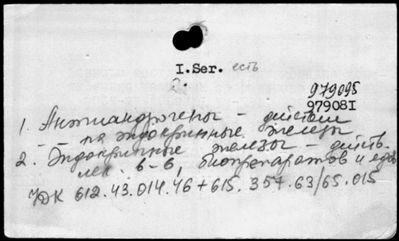 I.Ser. есть
2.
979095
979081
1. Антиандрогены – действие
на эндокринные железы
2. Эндокринные железы – действ.
лек. в-в, биопрепаратов и ядов
УДК 612.43.014.46+615.357.63/65.015